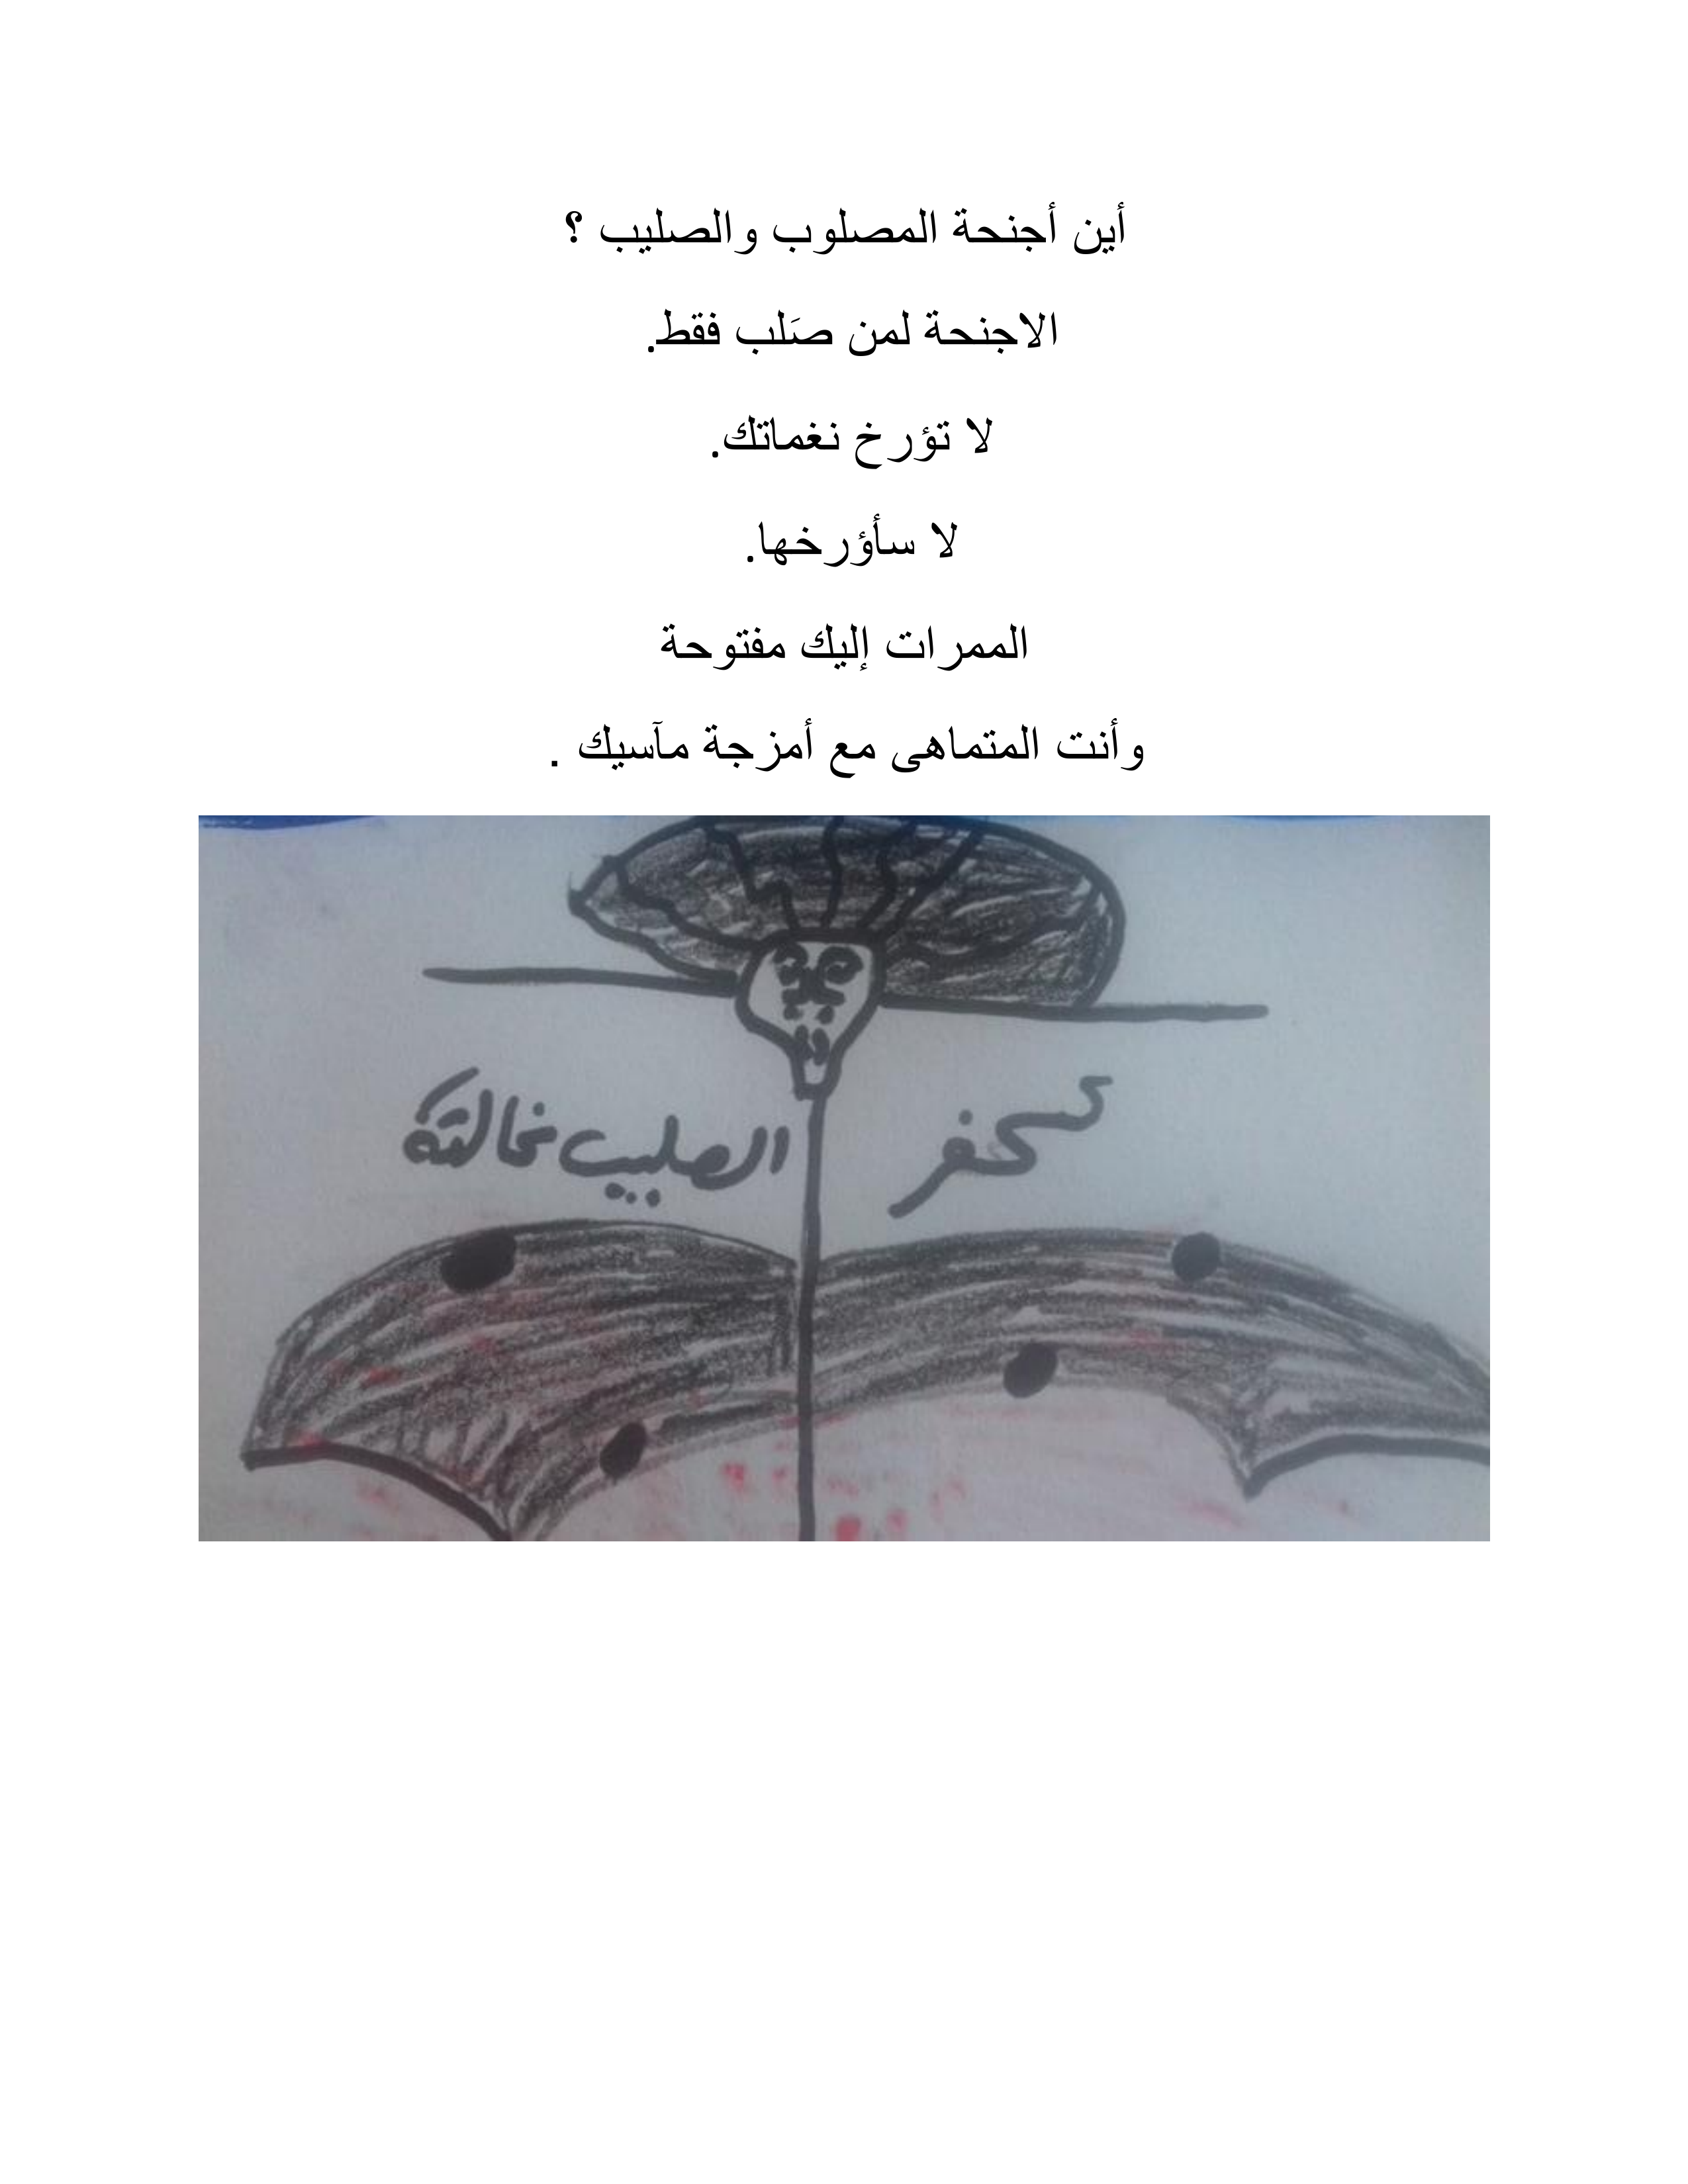 أين أجنحة المصلوب والصليب ؟
الاجنحة لمن صَلب فقط.
لا تؤرخ نغماتك.
لا سأؤرخها.
الممرات إليك مفتوحة
وأنت المتماهى مع أمزجة مآسيك .
الصليب